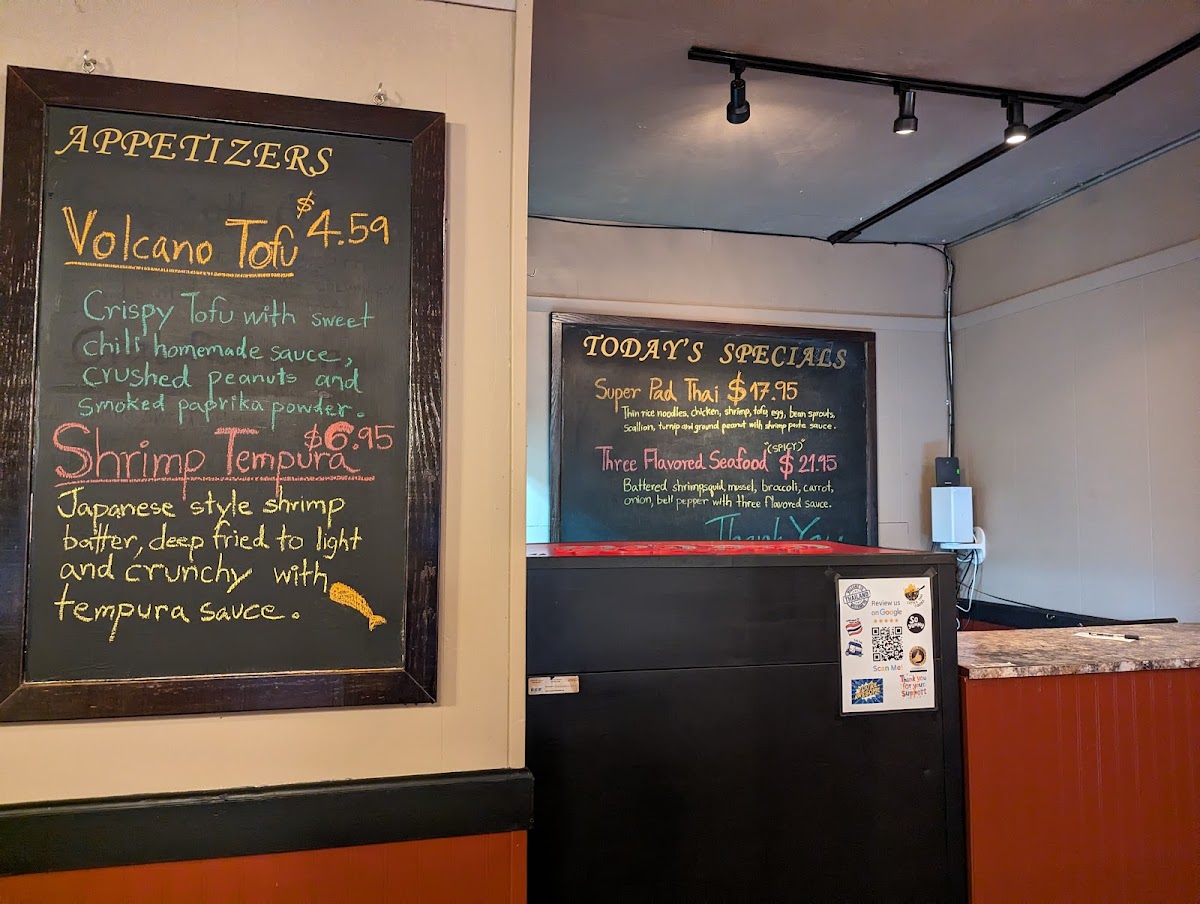 APPETIZERS
Volcano Tofu $4.59
Crispy Tofu with sweet
chili homemade sauce,
crushed peanuts and
smoked paprika powder.
Shrimp Tempura $6.95
Japanese style shrimp
batter, deep fried to light
and crunchy with
tempura sauce.
TODAY'S SPECIALS
Super Pad Thai $17.95
Thin rice noodles, chicken, shrimp, tofu, egg, bean sprouts,
Scallion, turnip and ground peanut with shrimp paste sauce.
Three Flavored Seafood "(SPICY)" $21.95
Battered shrimp, squid, mussel, broccoli, carrot,
onion, bell pepper with three flavored sauce.
Thank You
THAILAND
Review us
on Google
SO YUMMY
Scan Me!
Thank you
for your
support